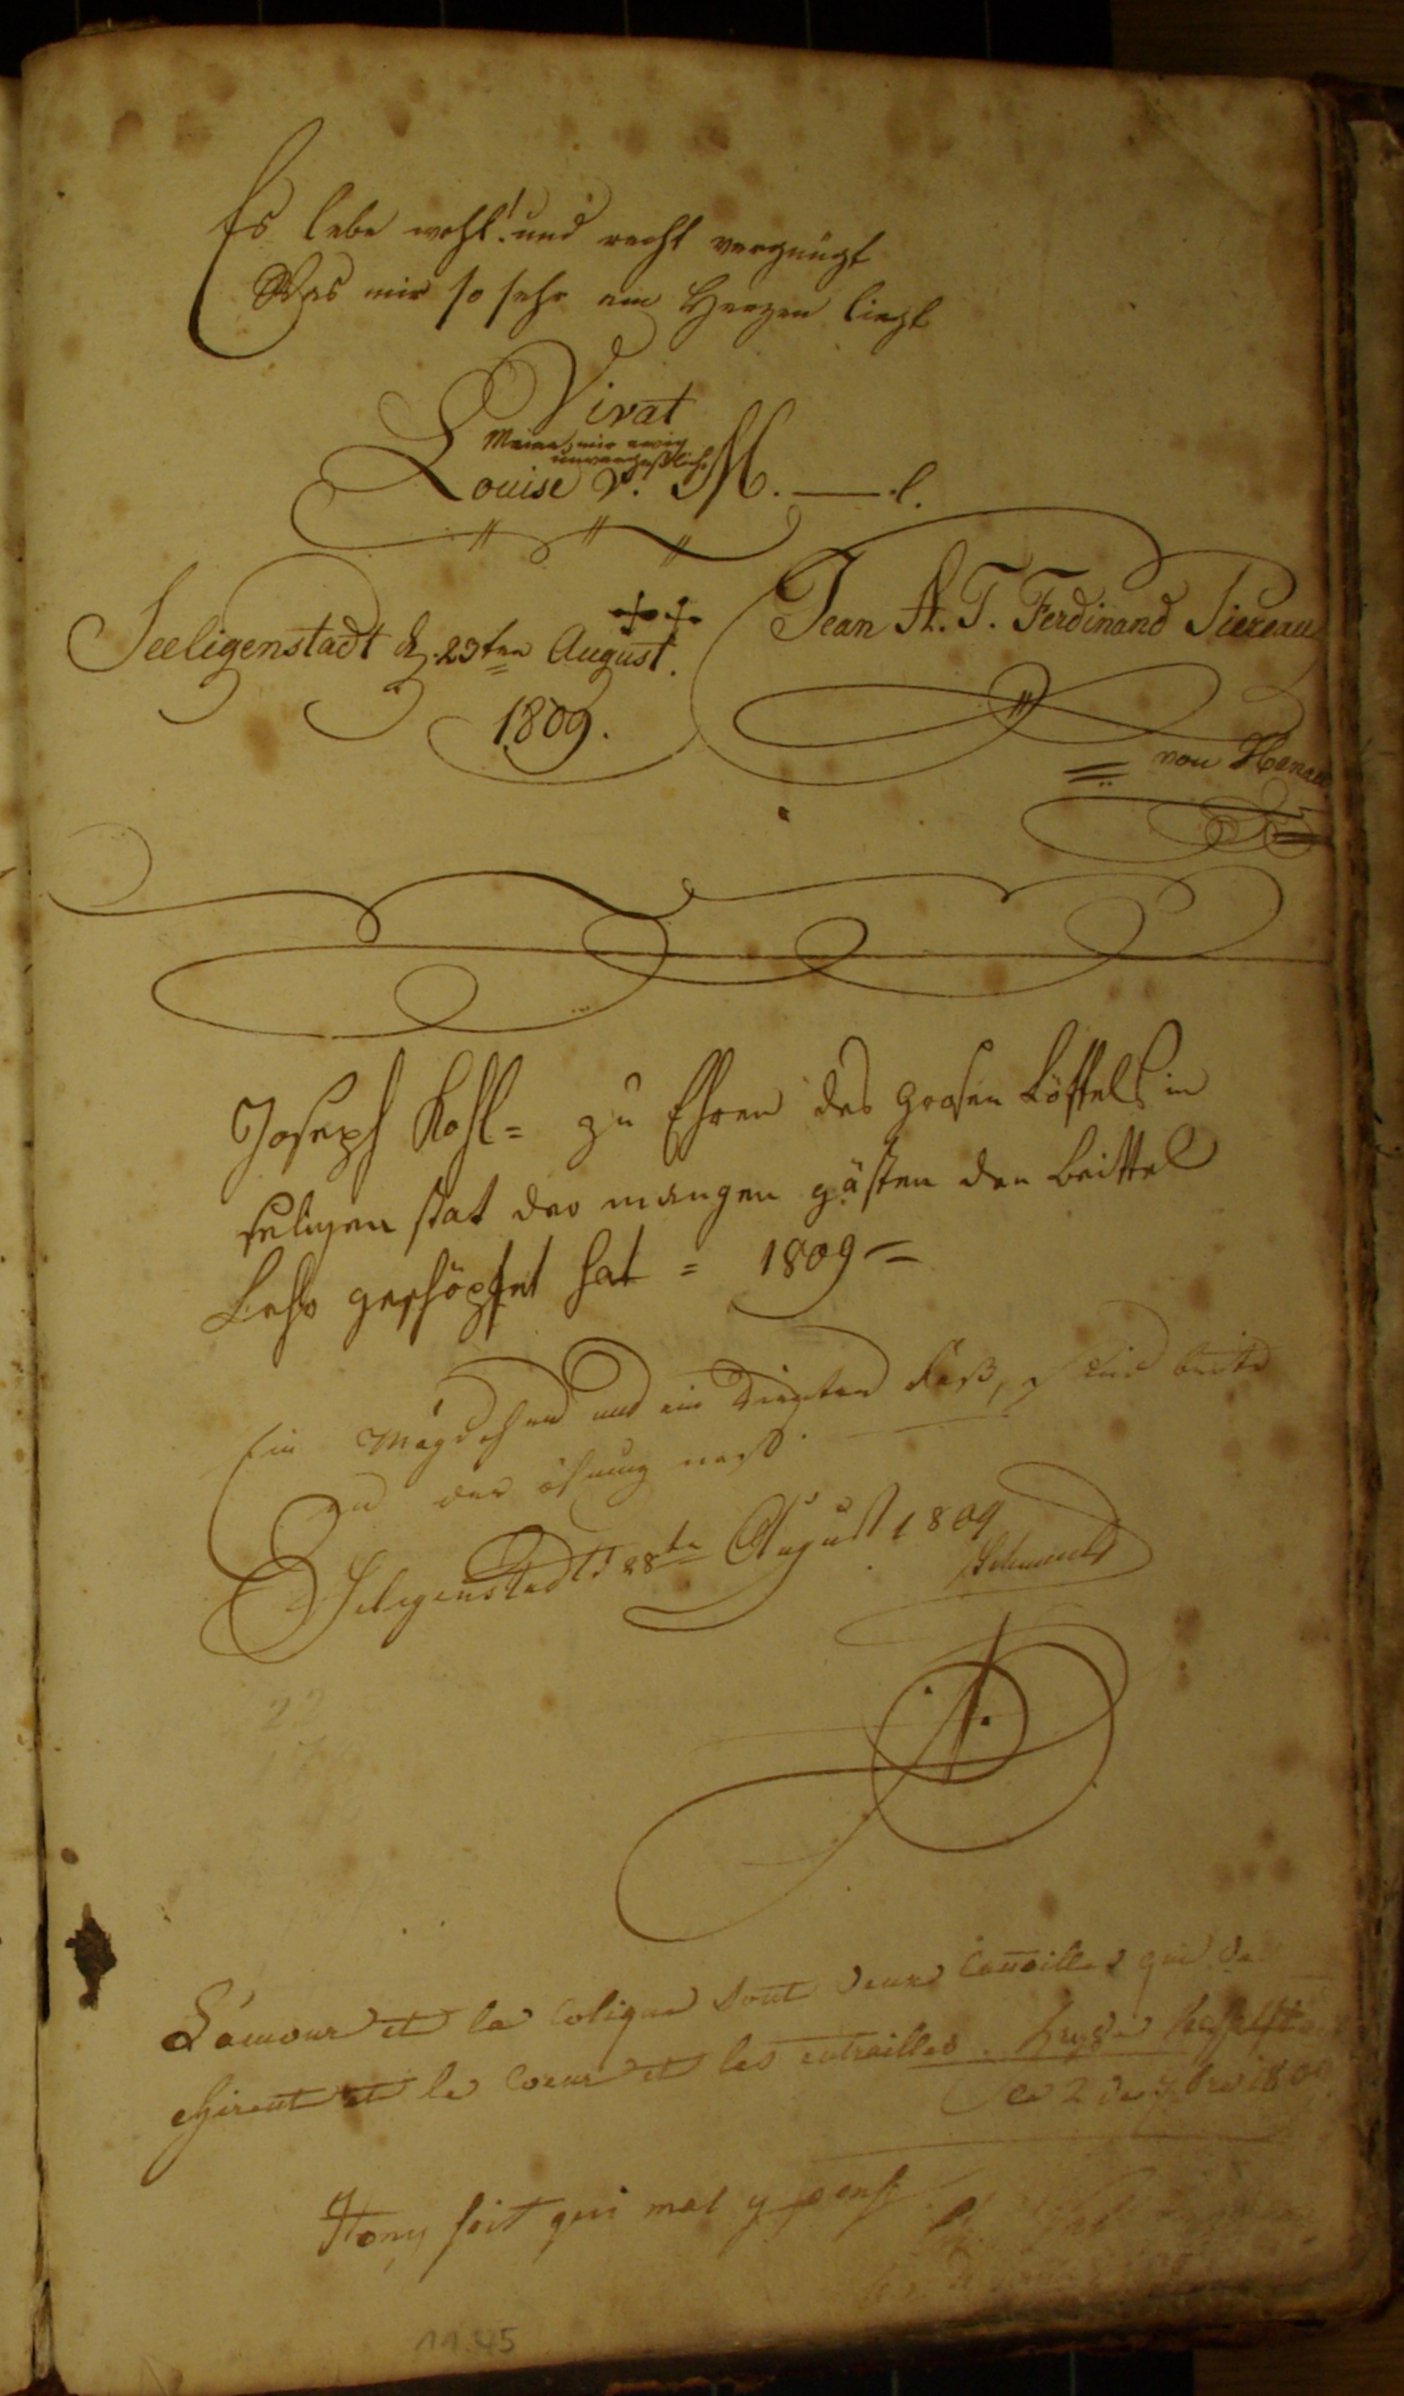 Es lebe wohl! und recht vergnügt
Was mir so sehr am Herzen liegt
Vivat
Meine, mir ewig
unvergeßliche
Louise v. M. — l.
Seeligenstadt d. 23ten August.
1809.
Jean A. T. Ferdinand Piereau
von Hanau
Joseph Kohl = zu Ehren des grosen Löffels in
seligen stat der mangen gästen den beittel
Lehr geschöpfet hat = 1809 =
Ein Mägdchen und ein Dinten Faß, sind beite
an der öfnung naß.
Seligenstadt 28te August 1809
L'amour et la colique sont deux canailles qui de
chirent et le coeur et les entrailles.
le 2 de 7bre 1809
Hony soit qui mal y pense
11.45